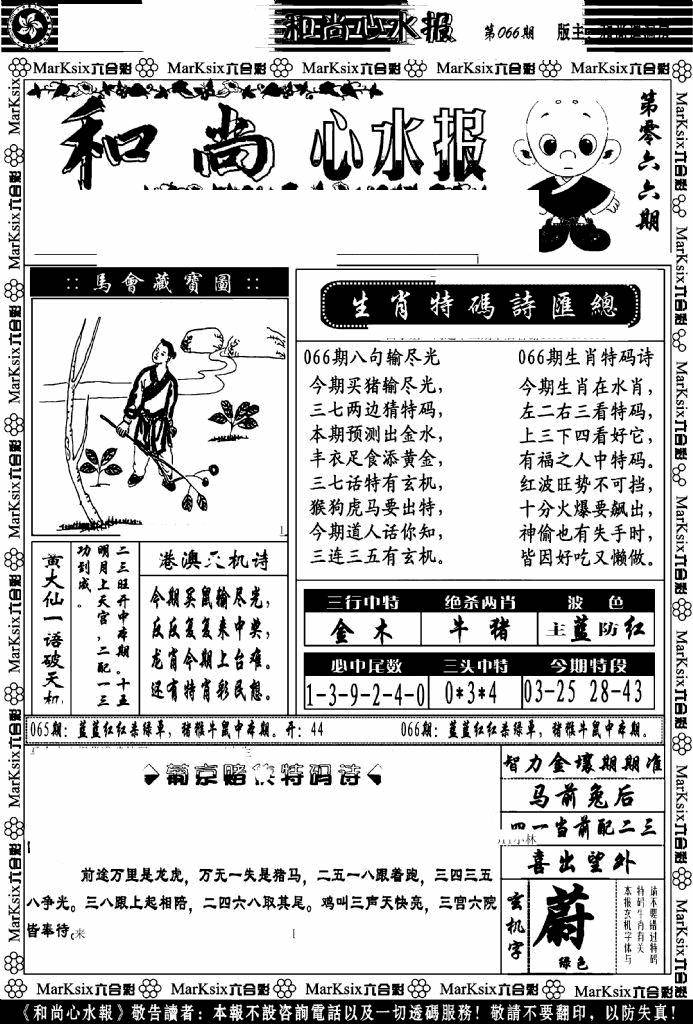 和尚心水报 第066期 版主:
MarKsix六合彩 MarKsix六合彩 MarKsix六合彩 MarKsix六合彩 MarKsix六合彩
和尚心水报
第零六六期
::馬會藏寶圖::
生肖特碼詩匯總
066期八句输尽光
今期买猪输尽光,
三七两边猜特码,
本期预测出金水,
丰衣足食添黄金,
三七话特有玄机,
猴狗虎马要出特,
今期道人话你知,
三连三五有玄机。
066期生肖特码诗
今期生肖在水肖,
左二右三看特码,
上三下四看好它,
有福之人中特码。
红波旺势不可挡,
十分火爆要飙出,
神偷也有失手时,
皆因好吃又懒做。
黄大仙一语破天机
二三旺开中本期。十五
明月上天宫,二配一三
功到成。
港澳天机诗
今期买鼠输尽光,
反反复复来中奖,
龙肖今期上台难。
还有特肖彩民想。
三行中特 绝杀两肖 波色
金木 牛猪 主蓝防红
必中尾数 三头中特 今期特段
1-3-9-2-4-0 0*3*4 03-25 28-43
065期:蓝蓝红红杀绿单,猪猴牛鼠中本期。开:44
066期:蓝蓝红红杀绿单,猪猴牛鼠中本期。
葡京赌侠特码诗
前途万里是龙虎,万天一失是猪马,二五一八跟着跑,三四三五
八争光。三八跟上起相陪,二四六八取其尾。鸡叫三声天快亮,三宫六院
皆奉待。来
智力金壤期期准
马前兔后
四一当前配二三
小林
喜出望外
玄机字
蔚
绿色
请不要错过特码
特码生肖有关
本报玄机字体与
MarKsix六合彩 MarKsix六合彩 MarKsix六合彩 MarKsix六合彩 MarKsix六合彩
《和尚心水報》敬告讀者:本報不設咨詢電話以及一切透碼服務!敬請不要翻印,以防失真!